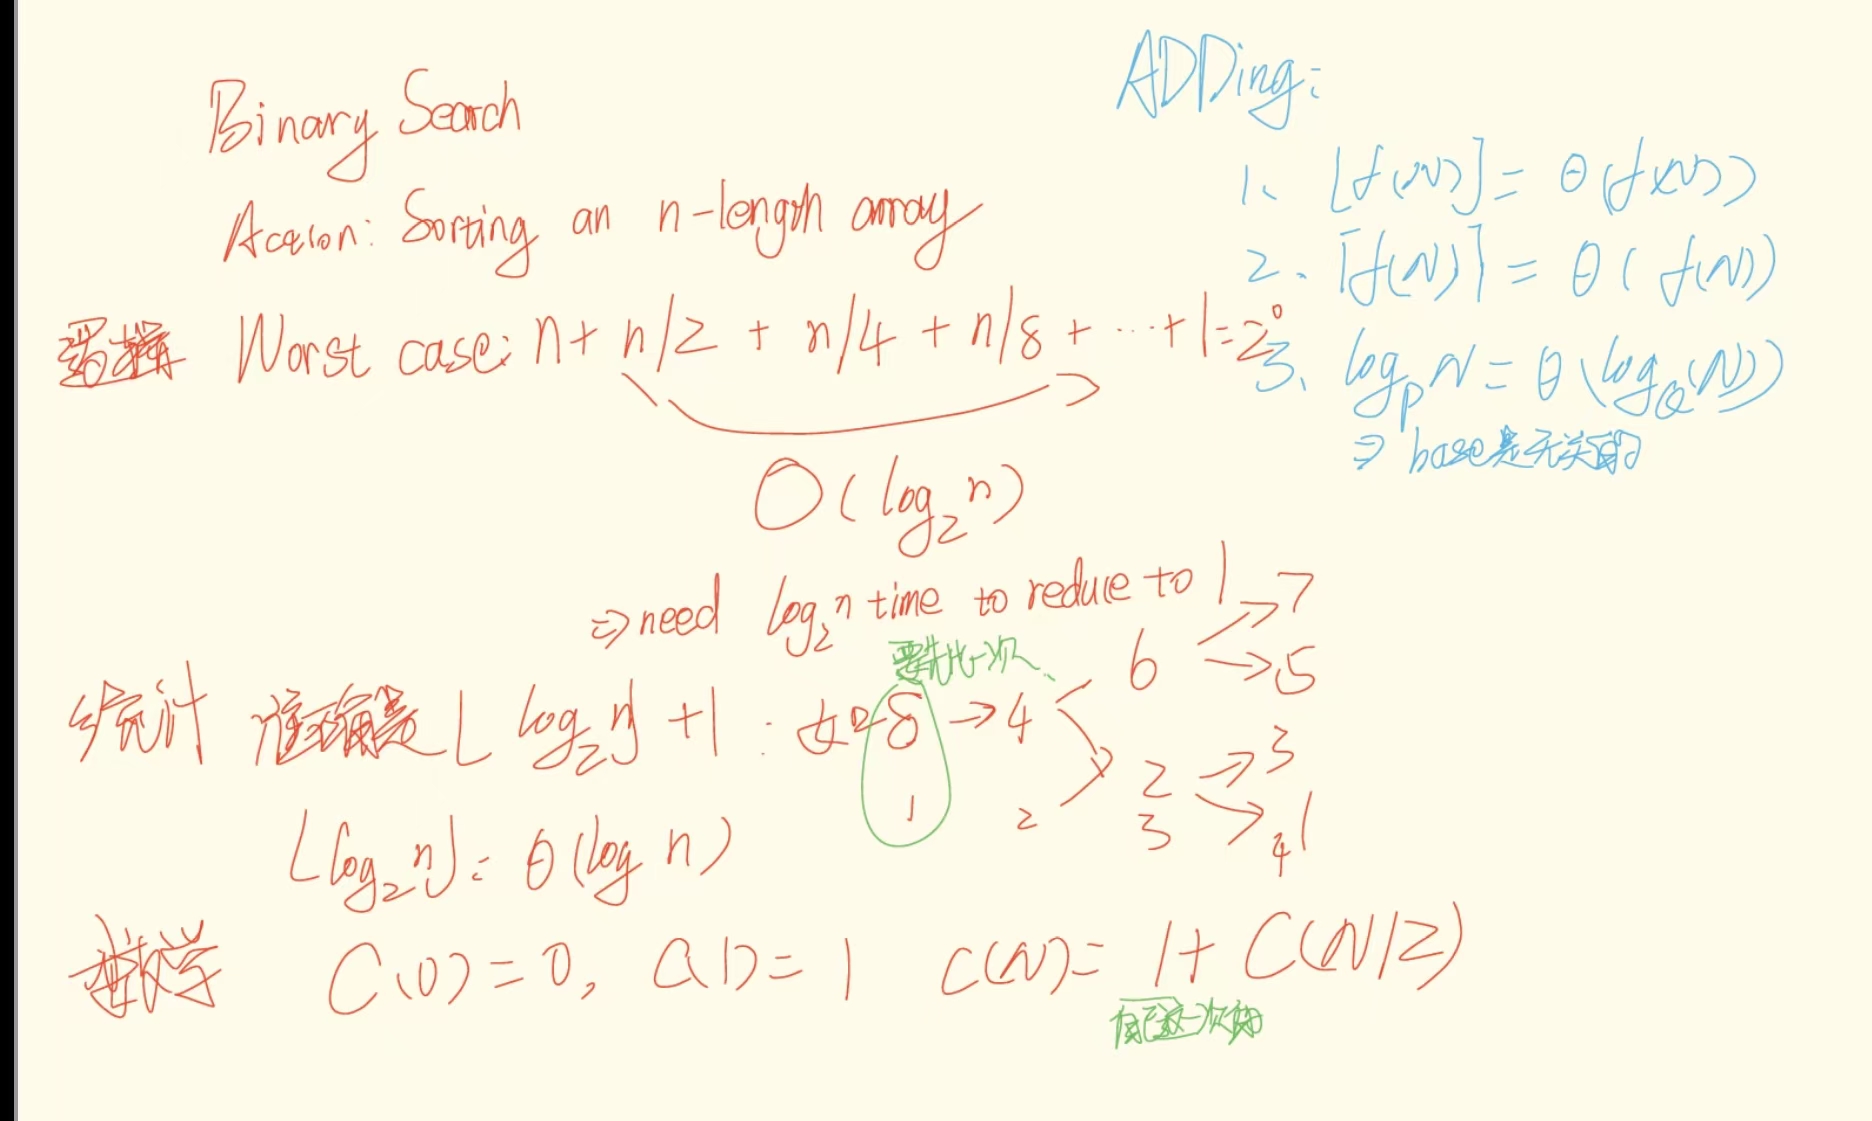 Binary Search
Action: Sorting an n-length array
逻辑 Worst case: n + n/2 + n/4 + n/8 + ... + 1 = 2⁰
O(log₂n)
⇒ need log₂n time to reduce to 1
要先比一次
统计 准确是 ⌊log₂n⌋ + 1 : 如 8 → 4
6 → 7
→ 5
2 → 3
→ 1
1 2 3 4
⌊log₂n⌋ = θ(log n)
数学 C(0) = 0, C(1) = 1 C(N) = 1 + C(N/2)
自己这一次的
ADDing:
1、⌊f(N)⌋ = θ(f(N))
2、⌈f(N)⌉ = θ(f(N))
3、log_P N = θ(log_Q(N))
⇒ base是无关的